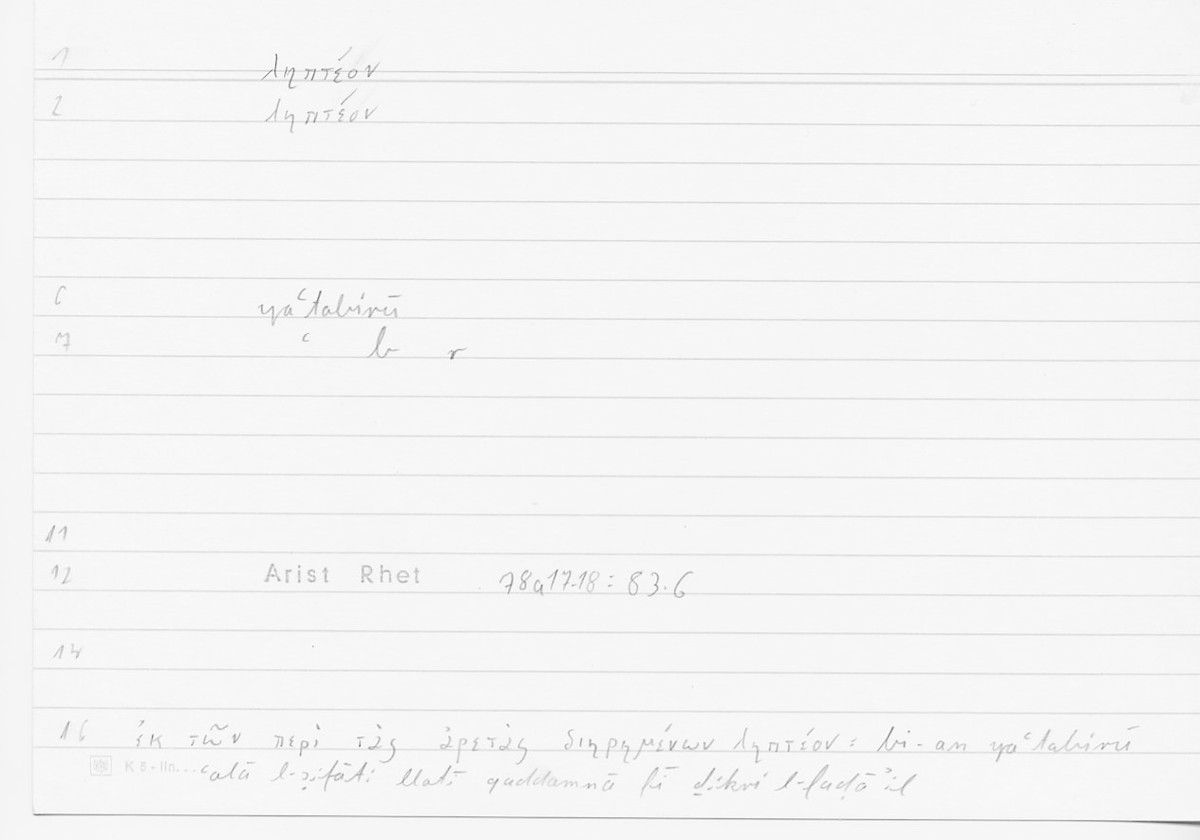 1 ληπτέον
2 ληπτέον
6 yaʿtabirū
7 ʿ b r
11
12 Arist Rhet 78a17-18 : 83.6
14
16 ἐκ τῶν περὶ τὰς ἀρετὰς διῃρημένων ληπτέον : bi-an yaʿtabirū
ʿalā l-ṣifāti llatī qaddamnā fī ḏikri l-faḍāʾil